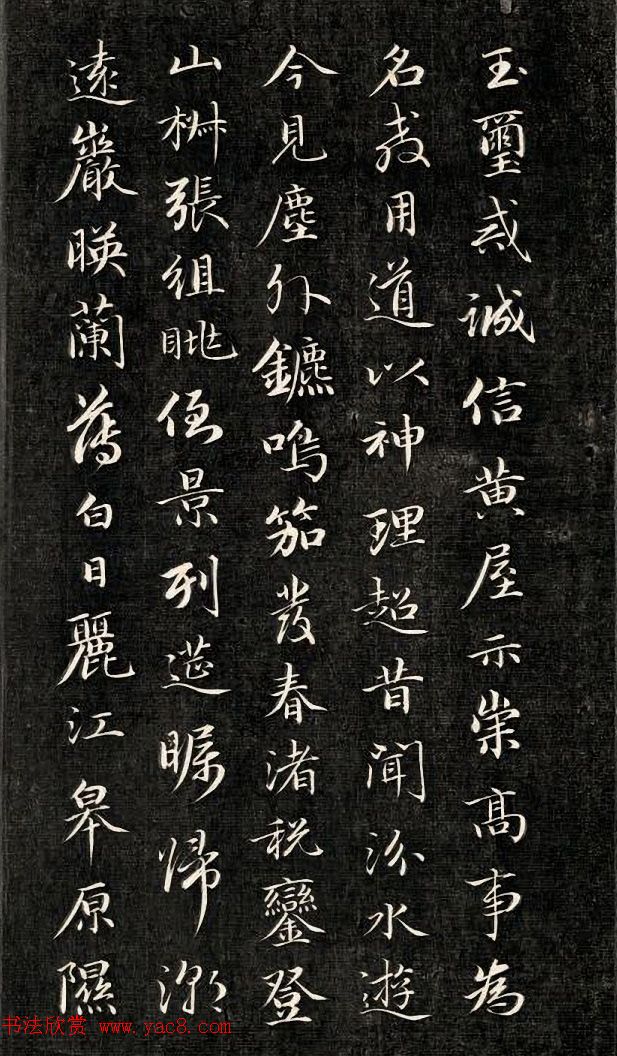 玉璽戒誠信黄屋示崇髙事為
名教用道以神理超昔聞汾水遊
今見塵外鑣鳴笳發春渚税鑾登
山椒張組眺倒景列筵瞩歸潮
遠巖暎蘭薄白日麗江皋原隰
书法欣赏 www.yac8.com